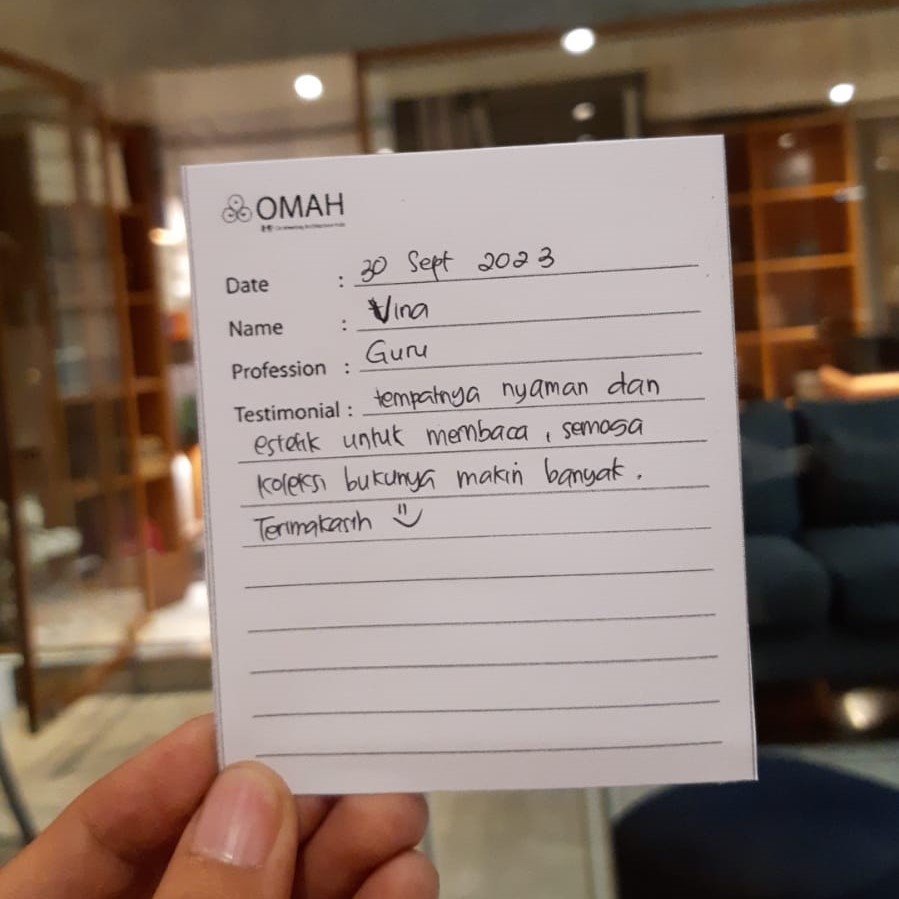 OMAH
Date : 30 Sept 2023
Name : Vina
Profession : Guru
Testimonial : tempatnya nyaman dan
estetik untuk membaca, semoga
koleksi bukunya makin banyak.
Terimakasih